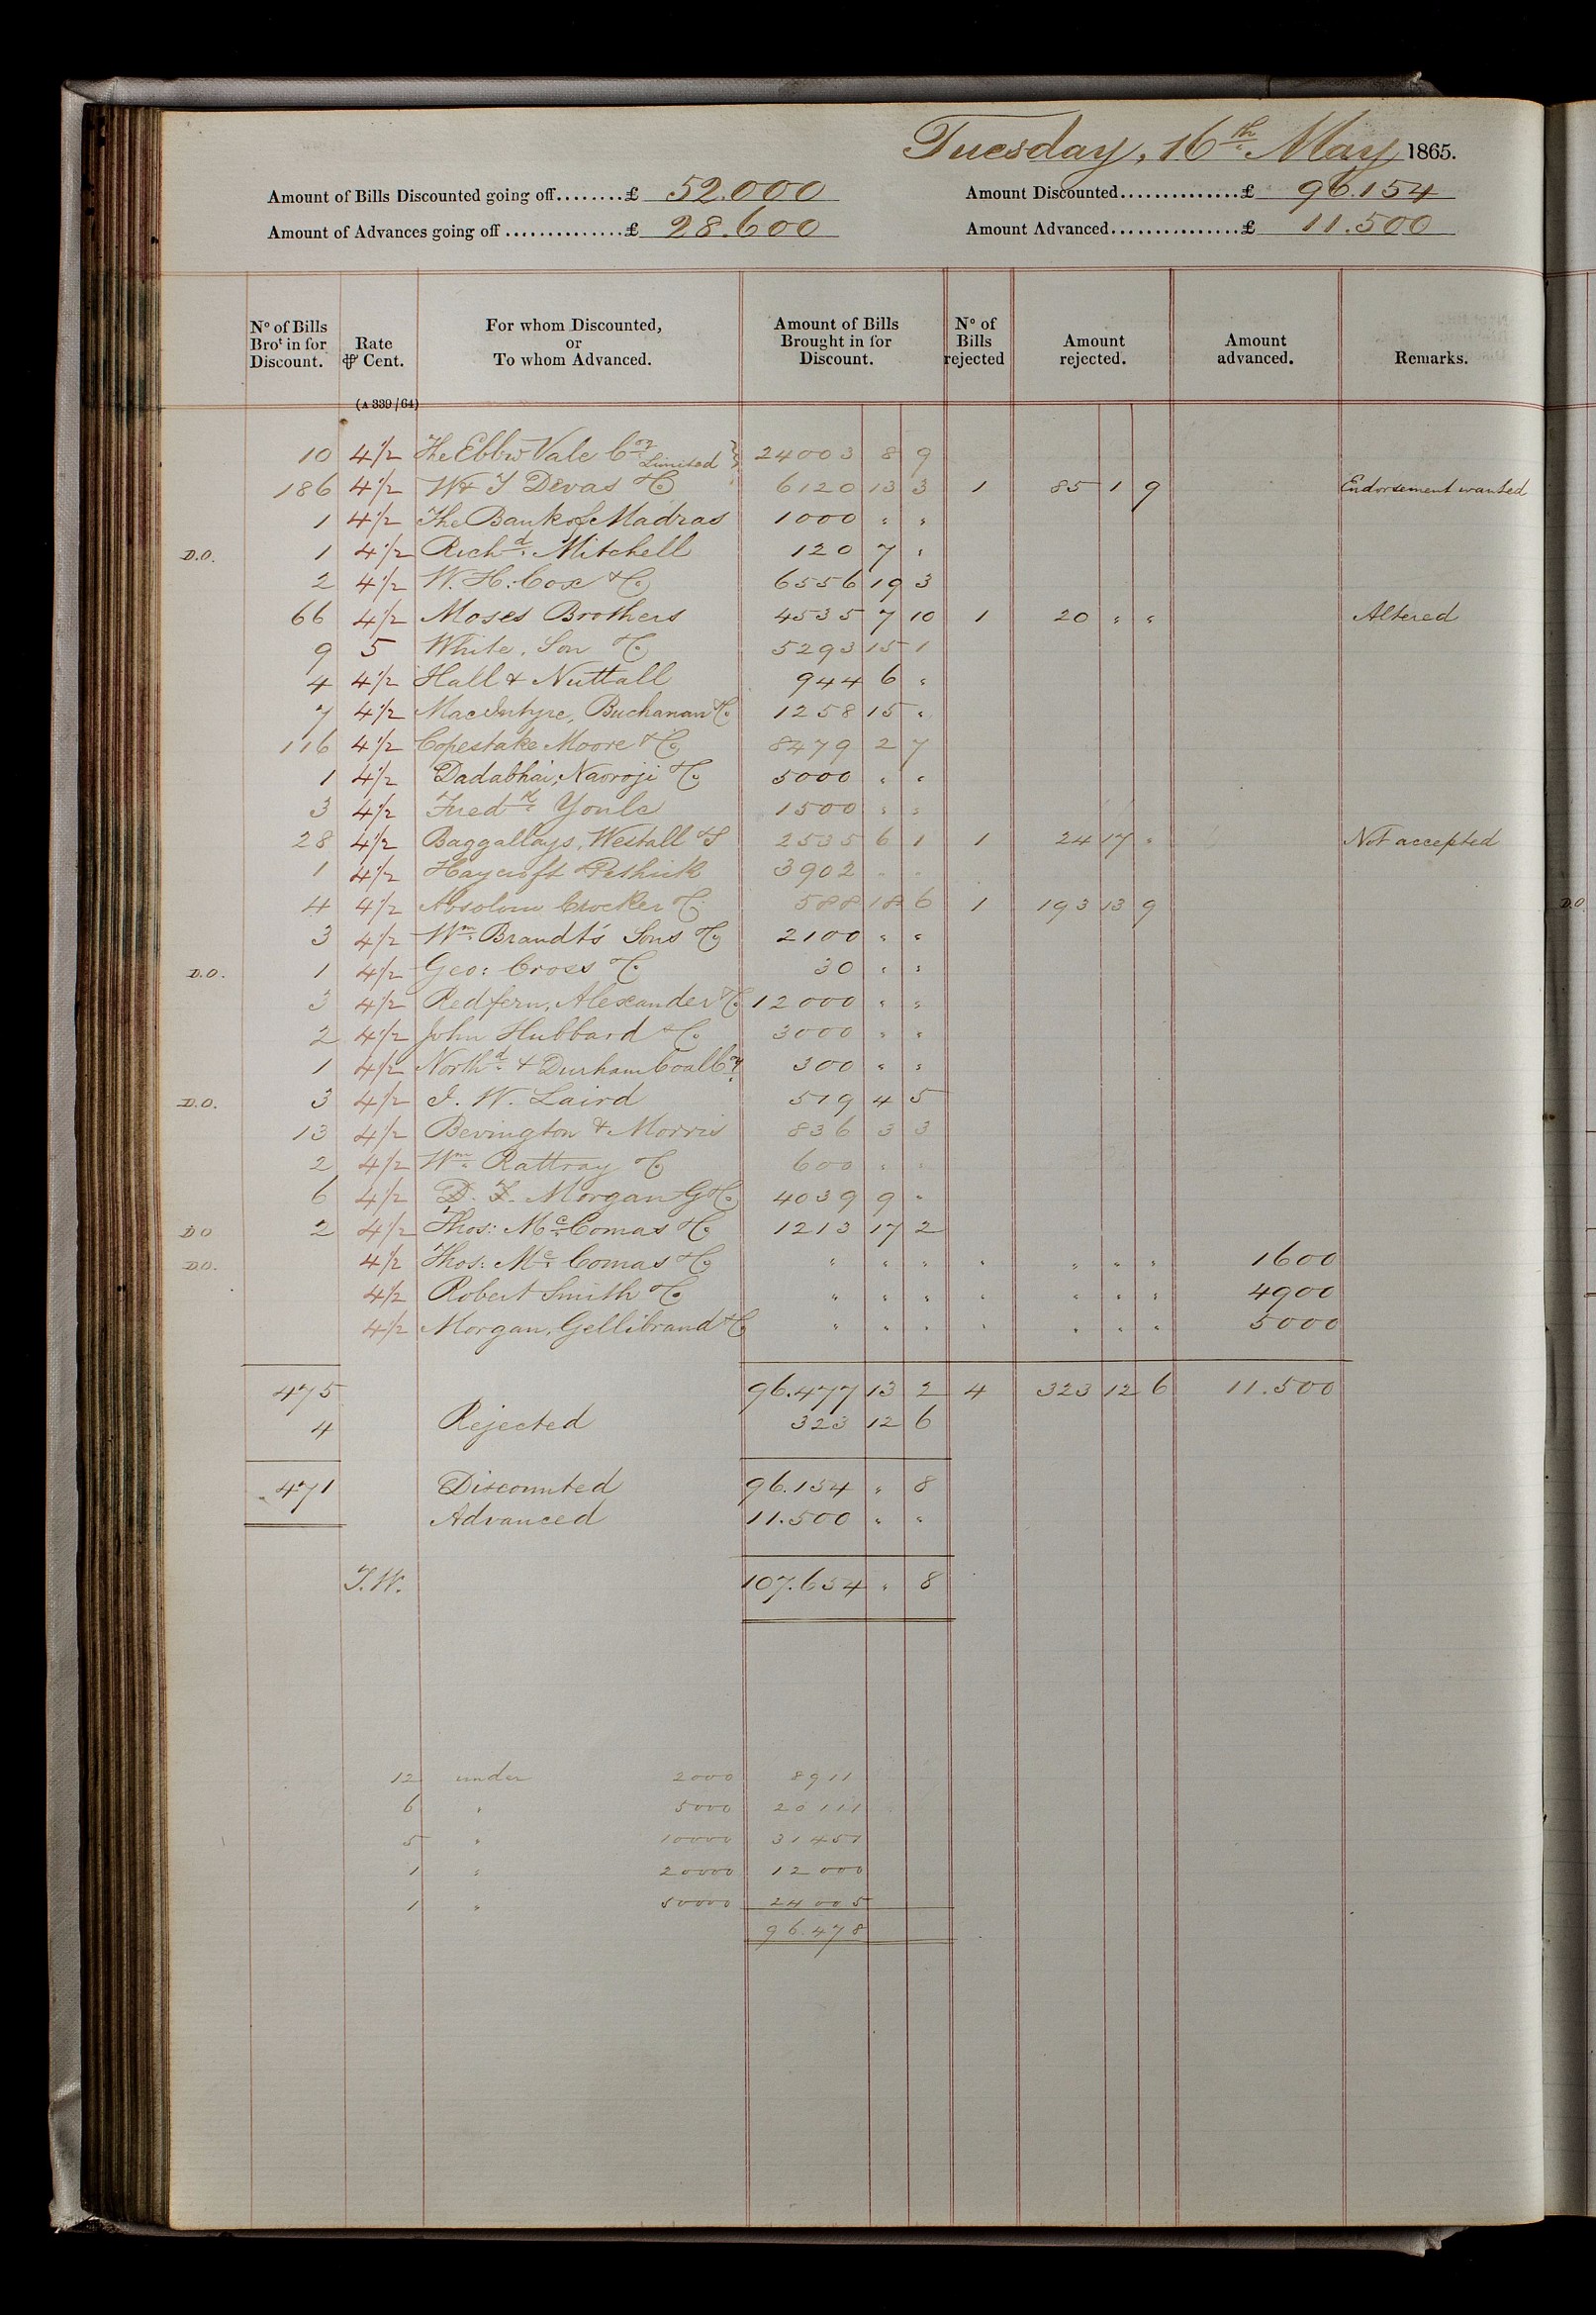 Tuesday, 16th May 1865.
Amount of Bills Discounted going off........£ 52.000 Amount Discounted...............£ 96.154
Amount of Advances going off ..............£ 28.600 Amount Advanced................£ 11.500
No of Bills Brot in for Discount. Rate ⅌ Cent. For whom Discounted, or To whom Advanced. Amount of Bills Brought in for Discount. No of Bills rejected Amount rejected. Amount advanced. Remarks.
(A 339/64)
10 4½ The Ebbw Vale Coy Limited 24003 8 9
186 4½ W & T Devas & Co 6120 13 3 1 85 1 9 Endorsement wanted
1 4½ The Bank of Madras 1000 " "
D.O. 1 4½ Richd. Mitchell 120 7 "
2 4½ W. H. Cox & Co 6556 19 3
66 4½ Moses Brothers 4535 7 10 1 20 " " Altered
9 5 White, Son & Co. 5293 15 1
4 4½ Hall & Nuttall 944 6 "
7 4½ MacIntyre, Buchanan & Co. 1258 15 "
116 4½ Copestake Moore & Co. 8479 2 7
1 4½ Dadabhai, Naoroji & Co. 5000 " "
3 4½ Fredk. Youle 1500 " "
28 4½ Baggallays, Westall & S 2535 6 1 1 24 17 " Not accepted
1 4½ Haycroft & Pethick 3902 " "
4 4½ Absolom Crocker & Co. 588 18 6 1 193 13 9 D.O
3 4½ Wm. Brandt's Sons & Co 2100 " "
D.O. 1 4½ Geo: Cross & Co. 30 " "
3 4½ Redfern, Alexander & Co. 12000 " "
2 4½ John Hubbard & Co. 3000 " "
1 4½ Northd. & Durham Coal Coy. 300 " "
D.O. 3 4½ J. W. Laird 519 4 5
13 4½ Bevington & Morris 836 3 3
2 4½ Wm. Rattray & Co 600 " "
6 4½ D. T. Morgan G & Co. 4039 9 "
DO 2 4½ Thos: Mc. Comas & Co. 1213 17 2
D.O. 4½ Thos: Mc. Comas & Co. " " " " " " " 1600
4½ Robert Smith & Co. " " " " " " " 4900
4½ Morgan, Gellibrand & Co " " " " " " " 5000
475 96.477 13 2 4 323 12 6 11.500
4 Rejected 323 12 6
471 Discounted 96.154 " 8
Advanced 11.500 " "
T.W. 107.654 " 8
12 under 2000 8911
6 " 5000 20111
5 " 10000 31451
1 " 20000 12000
1 " 50000 24005
96.478